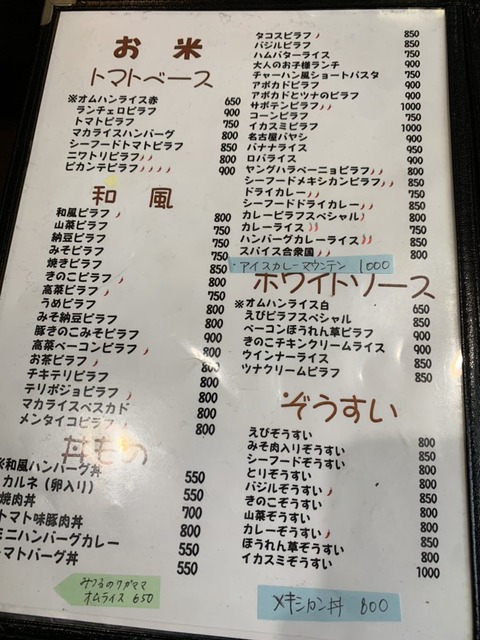 お米
トマトベース
※オムハンライス赤 650
ランチェロピラフ 900
トマトピラフ 750
マカライスハンバーグ 800
シーフードトマトピラフ 850
ニワトリピラフ 800
ピカンテピラフ 900
和風
和風ピラフ 800
山菜ピラフ 750
納豆ピラフ 750
みそピラフ 750
焼きピラフ 850
きのこピラフ 800
高菜ピラフ 750
うめピラフ 800
みそ納豆ピラフ 800
豚きのこみそピラフ 900
高菜ベーコンピラフ 800
お茶ピラフ 800
チキテリピラフ 800
テリポジョピラフ 800
マカライスペスカド 800
メンタイコピラフ 800
丼もの
※和風ハンバーグ丼 550
カルネ（卵入り） 550
焼肉丼 700
トマト味豚肉丼 800
ミニハンバーグカレー 550
トマトバーグ丼 550
みつるのワガママ
オムライス 650
タコスピラフ 850
バジルピラフ 850
ハムバターライス 750
大人のお子様ランチ 900
チャーハン風ショートパスタ 750
アボカドピラフ 900
アボカドとツナのピラフ 900
サボテンピラフ 1000
コーンピラフ 750
イカスミピラフ 1000
名古屋バヤシ 900
バナナライス 950
ロバライス 900
ヤングハラペーニョピラフ 800
シーフードメキシカンピラフ 850
ドライカレー 750
シーフードドライカレー 850
カレーピラフスペシャル 800
カレーライス 750
ハンバーグカレーライス 850
スパイス合衆国 800
・アイスカレーマウンテン 1000
ホワイトソース
※オムハンライス白 650
えびピラフスペシャル 850
ベーコンほうれん草ピラフ 900
きのこチキンクリームライス 900
ウインナーライス 850
ツナクリームピラフ 850
ぞうすい
えびぞうすい 800
みそ肉入りぞうすい 850
シーフードぞうすい 850
とりぞうすい 800
バジルぞうすい 850
きのこぞうすい 800
山菜ぞうすい 800
カレーぞうすい 800
ほうれん草ぞうすい 850
イカスミぞうすい 1000
メキシカン丼 800